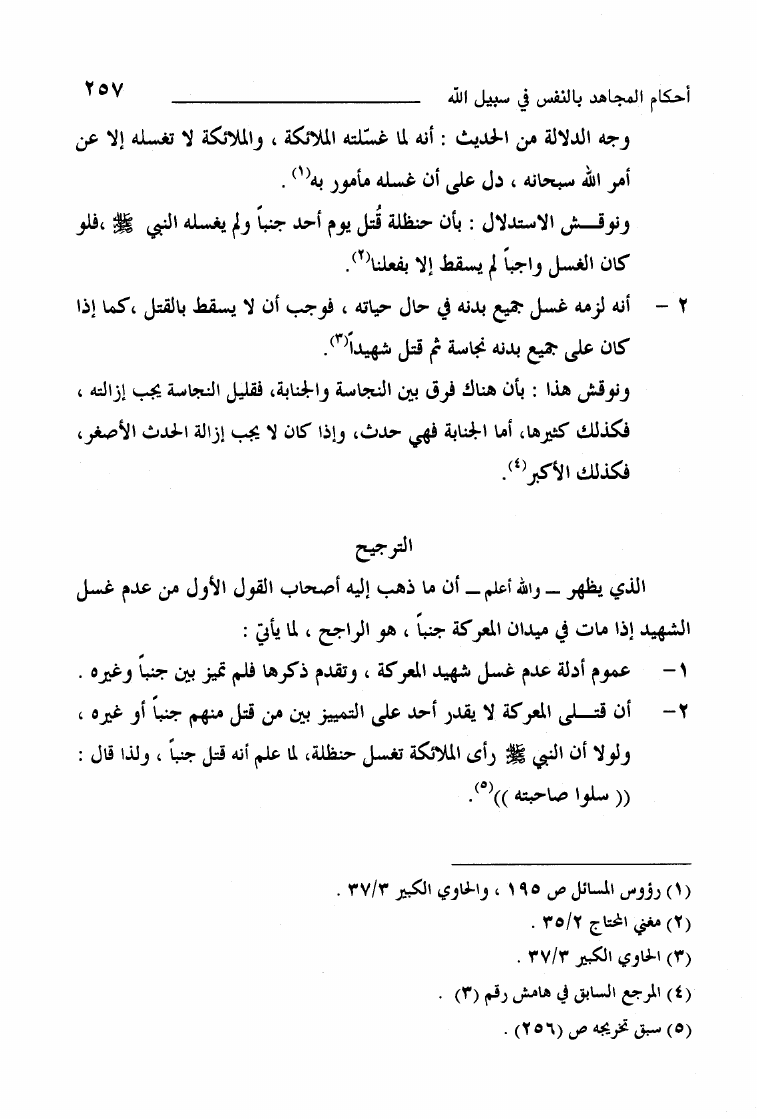 أحكام المجاهد بالنفس في سبيل الله ٢٥٧
وجه الدلالة من الحديث : أنه لما غسّلته الملائكة ، والملائكة لا تغسله إلا عن
أمر الله سبحانه ، دل على أن غسله مأمور به(١) .
ونوقـــش الاستدلال : بأن حنظلة قُتل يوم أحد جنباً ولم يغسله النبي ﷺ ،فلو
كان الغسل واجباً لم يسقط إلا بفعلنا(٢).
٢ – أنه لزمه غسل جميع بدنه في حال حياته ، فوجب أن لا يسقط بالقتل ،كما إذا
كان على جميع بدنه نجاسة ثم قتل شهيداً(٣).
ونوقش هذا : بأن هناك فرق بين النجاسة والجنابة، فقليل النجاسة يجب إزالته ،
فكذلك كثيرها، أما الجنابة فهي حدث، وإذا كان لا يجب إزالة الحدث الأصغر،
فكذلك الأكبر(٤).
الترجيح
الذي يظهر – والله أعلم – أن ما ذهب إليه أصحاب القول الأول من عدم غسل
الشهيد إذا مات في ميدان المعركة جنباً ، هو الراجح ، لما يأتي :
١– عموم أدلة عدم غسل شهيد المعركة ، وتقدم ذكرها فلم تميز بين جنباً وغيره .
٢– أن قتـــلى المعركة لا يقدر أحد على التمييز بين من قتل منهم جنباً أو غيره ،
ولولا أن النبي ﷺ رأى الملائكة تغسل حنظلة، لما علم أنه قتل جنباً ، ولذا قال :
(( سلوا صاحبته ))(٥).
(١) رؤوس المسائل ص ١٩٥ ، والحاوي الكبير ٣٧/٣ .
(٢) مغني المحتاج ٣٥/٢ .
(٣) الحاوي الكبير ٣٧/٣ .
(٤) المرجع السابق في هامش رقم (٣) .
(٥) سبق تخريجه ص (٢٥٦) .